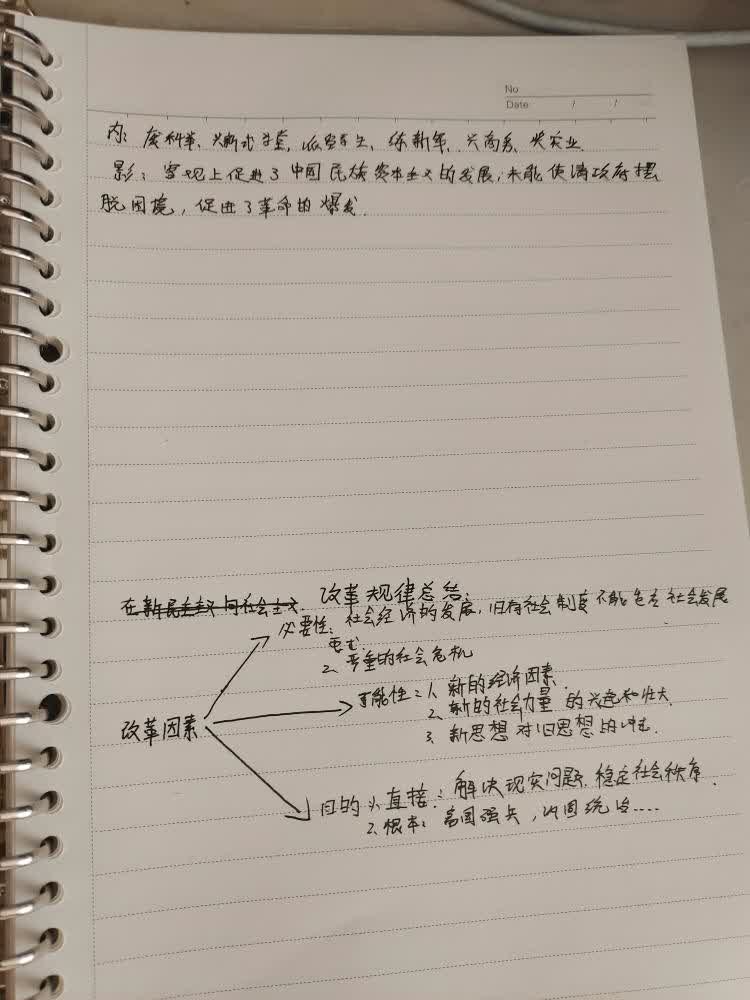 No
Date / /
内：废科举、兴新式学堂，派留学生、练新军、兴商务、奖实业
影：客观上促进了中国民族资本主义的发展；未能使清政府摆
脱困境，促进了革命的爆发.
在新民主主义向社会主义. 改革规律总结：
必要性：社会经济的发展，旧有社会制度不能包表社会发展
要求
2、严重的社会危机
可能性：1、新的经济因素.
2、新的社会力量的兴起和壮大
3、新思想对旧思想的冲击.
改革因素
目的：1、直接：解决现实问题，稳定社会秩序.
2、根本：富国强兵，巩固统治....